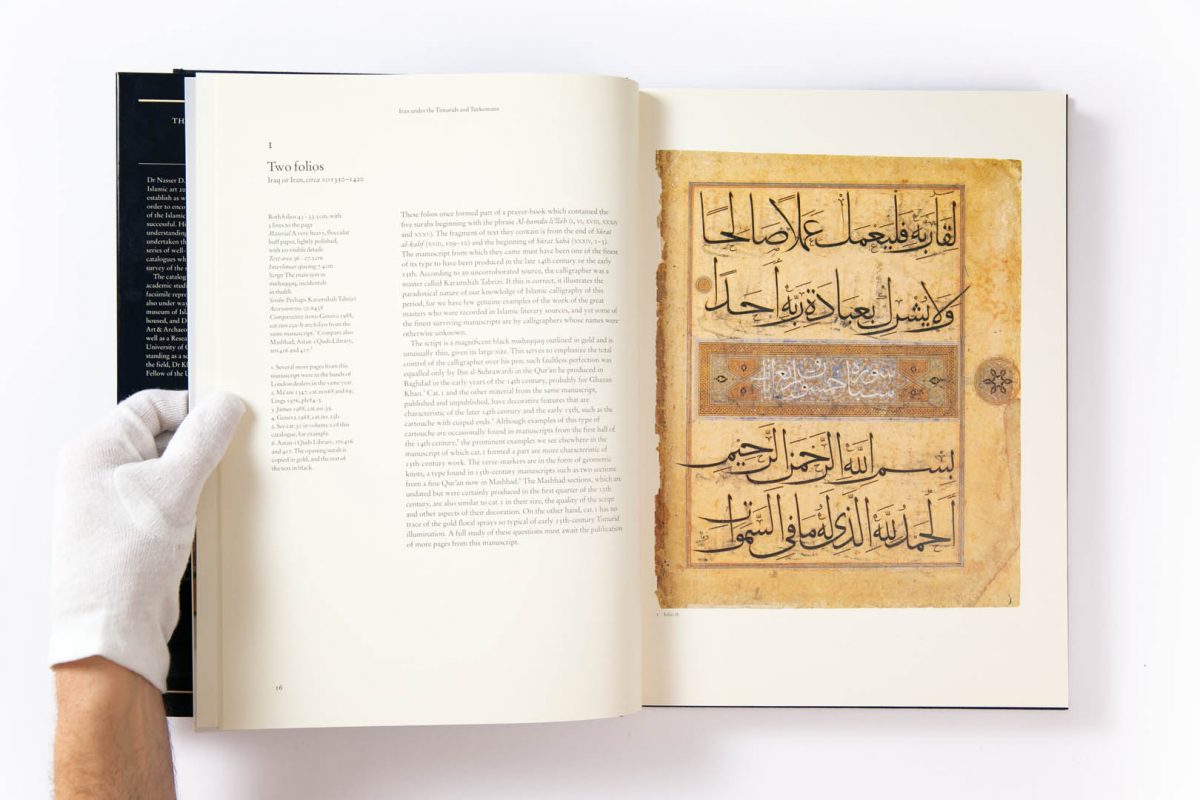 TH
Dr Nasser D.
Islamic art
establish as w
order to enco
of the Islamic
successful. He
understanding
undertaken th
series of well-
catalogues wh
survey of the s
The catalog
academic studi
facsimile repre
also under way
museum of Isla
housed, and D
Art & Archaeo
well as a Resea
University of O
standing as a sc
the field, Dr Kh
Fellow of the U
Iran under the Timurids and Turkomans
1
Two folios
Iraq or Iran, circa AD 1350–1400
Both folios 43 × 33.5 cm, with
5 lines to the page
Material A very heavy, floccular
buff paper, lightly polished,
with no visible details
Text area 36 × 27.2 cm
Interlinear spacing 7.4 cm
Script The main text in
muhaqqaq, incidentals
in thulth
Scribe Perhaps Karamshah Tabrizi
Accession no.
Comparative items Geneva 1988,
same manuscript.¹ Compare also
Mashhad, Astan-i Quds Library,
mss 416 and 417.²
1. Several more pages from this
manuscript were in the hands of
London dealers in the same year.
Lings 1976, pls 84–5.
3. James 1988, cat.no.39.
4. Geneva 1988, cat.no.25b
5. See cat.31 in volume 2 of this
catalogue, for example.
6. Astan-i Quds Library, mss 416
and 417. The opening surah is
copied in gold, and the rest of
the text in black.
These folios once formed part of a prayer-book which contained the
five surahs beginning with the phrase Al-hamdu li'llāh (I, VI, XVIII, XXXIV
and XXXV). The fragment of text they contain is from the end of Sūrat
al-kahf (XVIII, 109–10) and the beginning of Sūrat Sabā (XXXIV, 1–3).
The manuscript from which they came must have been one of the finest
of its type to have been produced in the late 14th century or the early
15th. According to an uncorroborated source, the calligrapher was a
master called Karamshah Tabrizi. If this is correct, it illustrates the
paradoxical nature of our knowledge of Islamic calligraphy of this
period, for we have few genuine examples of the work of the great
masters who were recorded in Islamic literary sources, and yet some of
the finest surviving manuscripts are by calligraphers whose names were
otherwise unknown.
The script is a magnificent black muhaqqaq outlined in gold and is
unusually thin, given its large size. This serves to emphasize the total
control of the calligrapher over his pen; such faultless perfection was
equalled only by Ibn al-Suhrawardi in the Qur'an he produced in
Baghdad in the early years of the 14th century, probably for Ghazan
Khan.³ Cat.1 and the other material from the same manuscript,
published and unpublished, have decorative features that are
characteristic of the later 14th century and the early 15th, such as the
cartouche with cusped ends.⁴ Although examples of this type of
cartouche are occasionally found in manuscripts from the first half of
the 14th century,⁵ the prominent examples we see elsewhere in the
manuscript of which cat.1 formed a part are more characteristic of
15th-century work. The verse-markers are in the form of geometric
knots, a type found in 15th-century manuscripts such as two sections
from a fine Qur'an now in Mashhad.⁶ The Mashhad sections, which are
undated but were certainly produced in the first quarter of the 15th
century, are also similar to cat.1 in their size, the quality of the script
and other aspects of their decoration. On the other hand, cat.1 has no
trace of the gold floral sprays so typical of early 15th-century Timurid
illumination. A full study of these questions must await the publication
of more pages from this manuscript.
16
لِقَاءَ رَبِّهِ فَلْيَعْمَلْ عَمَلًا صَالِحًا
وَلَا يُشْرِكْ بِعِبَادَةِ رَبِّهِ أَحَدًا
بِسْمِ اللَّهِ الرَّحْمَنِ الرَّحِيمِ
اَلْحَمْدُ لِلَّهِ الَّذِي لَهُ مَا فِي السَّمَوَاتِ
1 folio